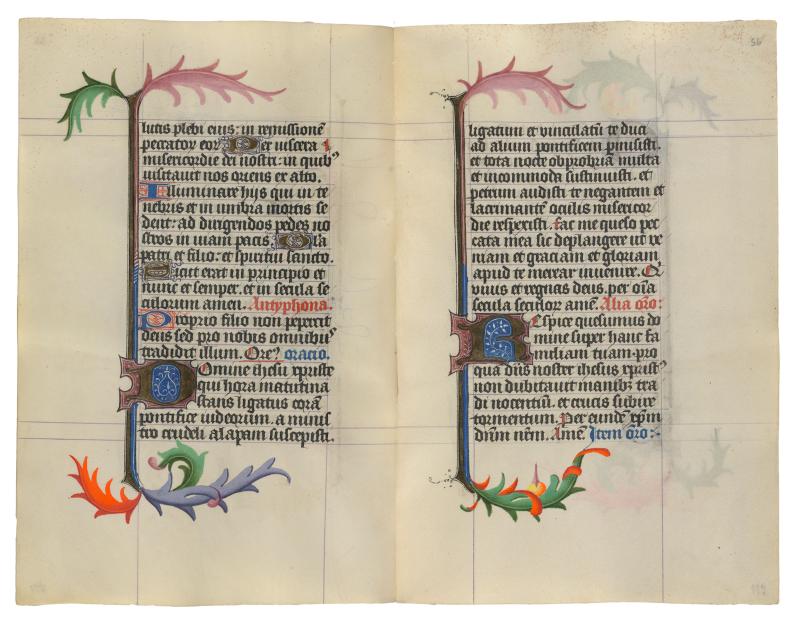 lutis plebi eius: in remissionē
peccatorꝫ eorꝫ Per viscera
misericordie dei nostri: in quibꝰ
visitauit nos oriens ex alto.
Illuminare hijs qui in te
nebris et in vmbra mortis se
dent: ad dirigendos pedes no
stros in viam pacis. Glā
patri et filio: et spiritui sancto.
Sicut erat in principio et
nunc et semper. et in secula se
culorum amen. Antyphona:
Proprio filio non pepercit
deus sed pro nobis omnibuꝰ
tradidit illum. oracio.
Domine ihesu xp̄riste
qui hora matutina
stans ligatus corā
pontifice iudeorum. a minis
tro crudeli alapam suscepisti.
56
ligatum et vinculatū te duci
ad alium pontificem p̄misisti.
et tota nocte obprobria multa
et incommoda sustinuisti. et
petrum audisti te negantem et
lacrimantē oculis misericor
die respexisti. fac me queso pec
cata mea sic deplangere ut ve
niam et graciam et gloriam
apud te merear inuenire. Q
viuis et regnas deus. per oīa
secula seculoꝝ amē. Alia or̄o:
Respice quesumus do
mine super hanc fa
miliam tuam. pro
qua dn̄s noster ihesus xp̄ristꝰ
non dubitauit manibꝫ tra
di nocentiū. et crucis subire
tormentum. Per eundē xp̄m
dn̄m nr̄m. Amē. Item or̄o: